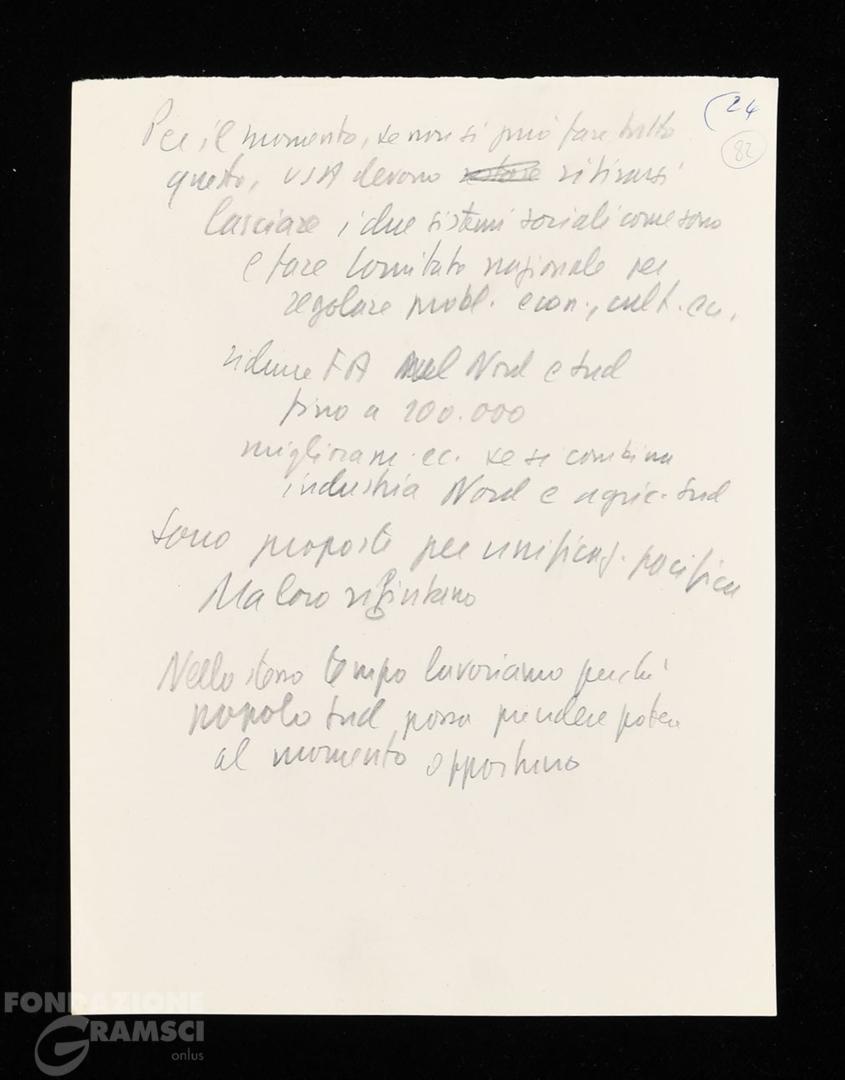 (24
82
Per il momento, se non si può fare tutto
questo, USA devono ritirarsi
lasciare i due sistemi sociali come sono
e fare Comitato nazionale per
regolare probl. econ., cult. ecc.
ridurre FA nel Nord e Sud
fino a 100.000
miglioram. ec. se si combina
industria Nord e agric. Sud
Sono proposte per unificaz. pacifica
Ma loro rifiutano
Nello stesso tempo lavoriamo perché
popolo Sud possa prendere potere
al momento opportuno
FONDAZIONE
GRAMSCI
onlus